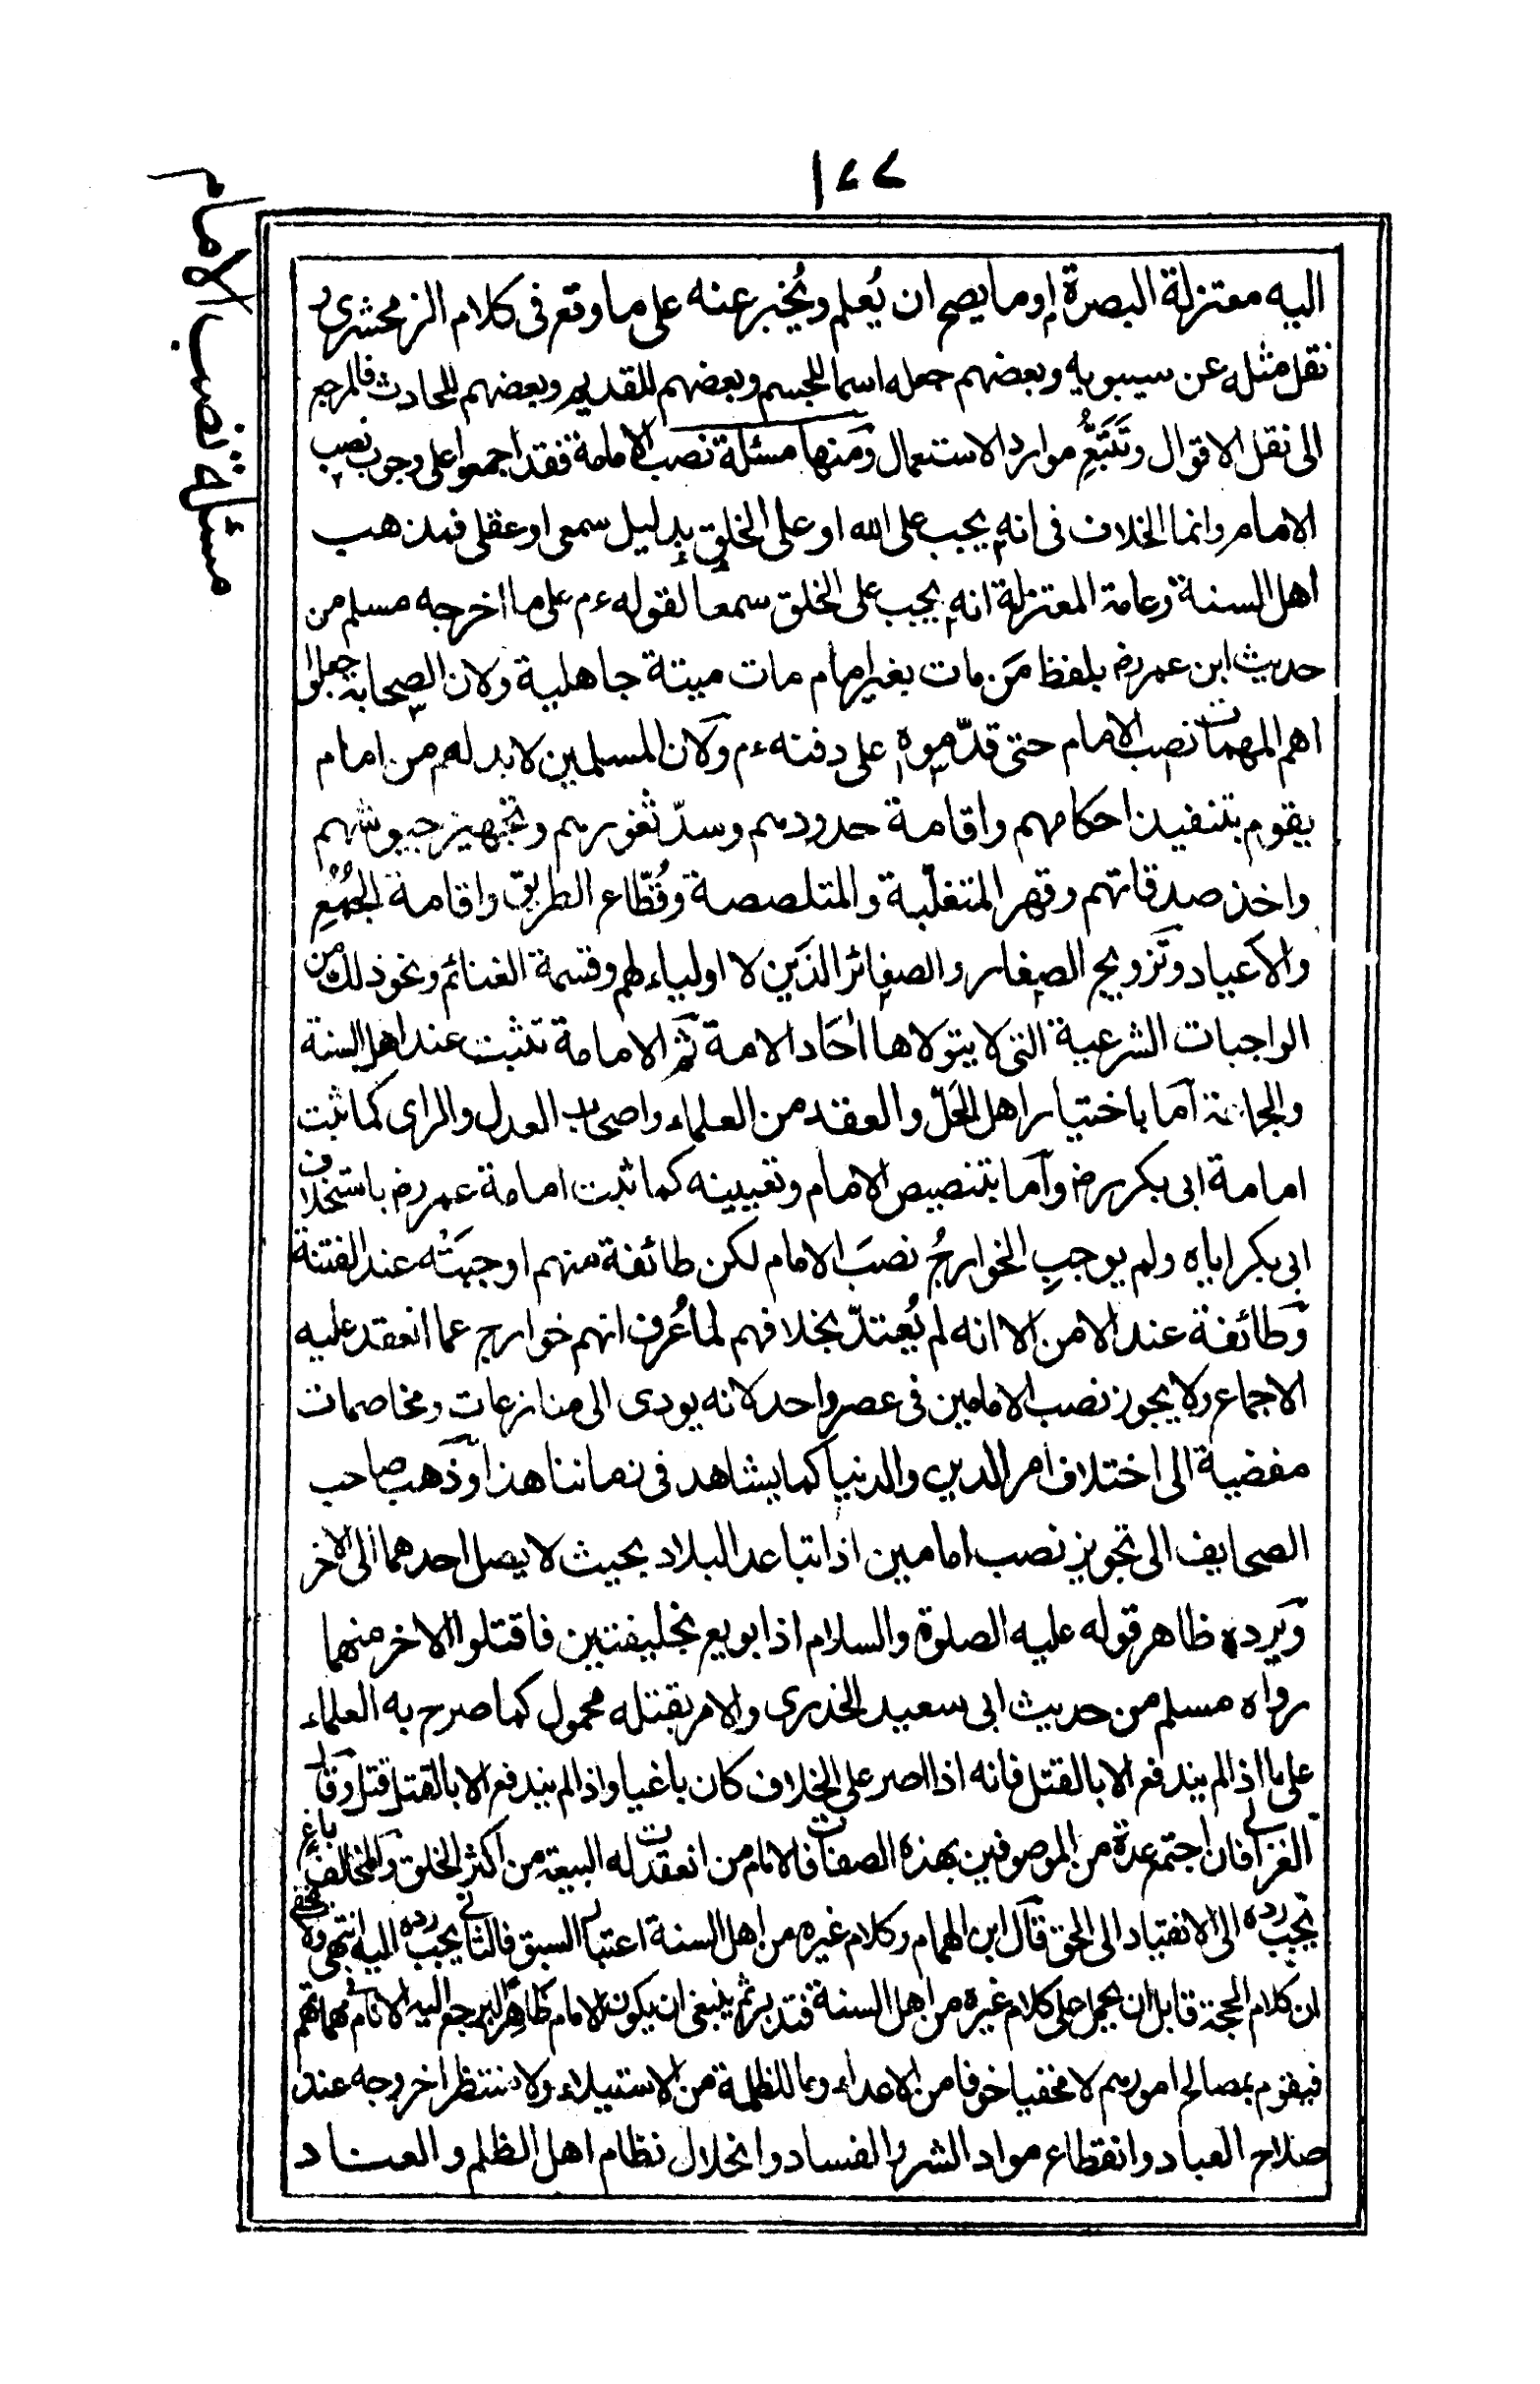 ١٧٧
مسئلة نصب الامام
اليه معتزلة البصرة او ما يصح ان يُعلم ويُخبر عنه على ما وقع فى كلام الزمخشرى و
نقل مثله عن سيبويه وبعضهم جعله اسما للجسم وبعضهم للقديم وبعضهم للحادث فالمرجع
الى نقل الاقوال وتَتَبُّعِ موارد الاستعمال ومنها مسئلة نصب الامامة فقد اجمعوا على وجوب نصب
الامام وانما الخلاف فى انه يجب على الله او على الخلق بدليل سمعى او عقلى فمذهب
اهل السنة وعامة المعتزلة انه يجب على الخلق سمعا لقوله ءم على ما اخرجه مسلم من
حديث ابن عمر رض بلفظ مَن مات بغير امام مات ميتة جاهلية ولان الصحابة جعلوا
اهم المهمات نصب الامام حتى قدّموه على دفنه ءم ولان المسلمين لا بد لهم من امام
يقوم بتنفيذ احكامهم واقامة حدودهم وسدّ ثغورهم وتجهيز جيوشهم
واخذ صدقاتهم وقهر المتغلّبة والمتلصصة وقُطّاع الطريق واقامة الجُمُعِ
والاعياد وتزويج الصغار والصغائر الذين لا اولياء لهم وقسمة الغنائم ونحو ذلك من
الواجبات الشرعية التى لا يتولاها آحاد الامة ثم الامامة تثبت عند اهل السنة
والجماعة اما باختيار اهل الحَلّ والعقد من العلماء واصحاب العدل والراى كما ثبت
امامة ابى بكر رض واما بتنصيص الامام وتعيينه كما ثبت امامة عمر رض باستخلاف
ابى بكر اياه ولم يوجبِ الخوارجُ نصبَ الامام لكن طائفة منهم اوجبَتْه عند الفتنة
وطائفة عند الامن الا انه لم يُعتدّ بخلافهم لما عُرف انهم خوارج عما انعقد عليه
الاجماع ولا يجوز نصب الامامين فى عصر واحد لانه يودى الى منازعات ومخاصمات
مفضية الى اختلاف امر الدين والدنيا كما يشاهد فى زماننا هذا وذهب صاحب
الصحايف الى تجويز نصب امامين اذا تباعد البلاد بحيث لا يصل احدهما الى الاخر
ويرده ظاهر قوله عليه الصلوة والسلام اذا بويع بخليفتين فاقتلوا الاخر منهما
رواه مسلم من حديث ابى سعيد الخدرى والامر بقتله محمول كما صرح به العلماء
على ما اذا لم يندفع الا بالقتل فانه اذا اصر على الخلاف كان باغيا واذا لم يندفع الا بالقتل قتل وقال
الغزالى فان اجتمع عدة من الموصوفين بهذه الصفات فالامام من انعقدت له البيعة من اكثر الخلق والمخالف باغ
يجب رده الى الانقياد الى الحق قال ابن الهمام وكلام غيره من اهل السنة اعتبار السبق فالثانى يجب رده اليه انتهى ولا يخفى
ان كلام الحجة قابل ان يحمل على كلام غيره من اهل السنة فتدبر ثم ينبغى ان يكون الامام ظاهرا ليرجع اليه الانام فى مهماتهم
فيقوم بمصالح امورهم لا مختفيا خوفا من الاعداء وما للظلمة من الاستيلاء ولا منتظرا خروجه عند
صلاح العباد وانقطاع مواد الشر والفساد وانحلال نظام اهل الظلم والعناد